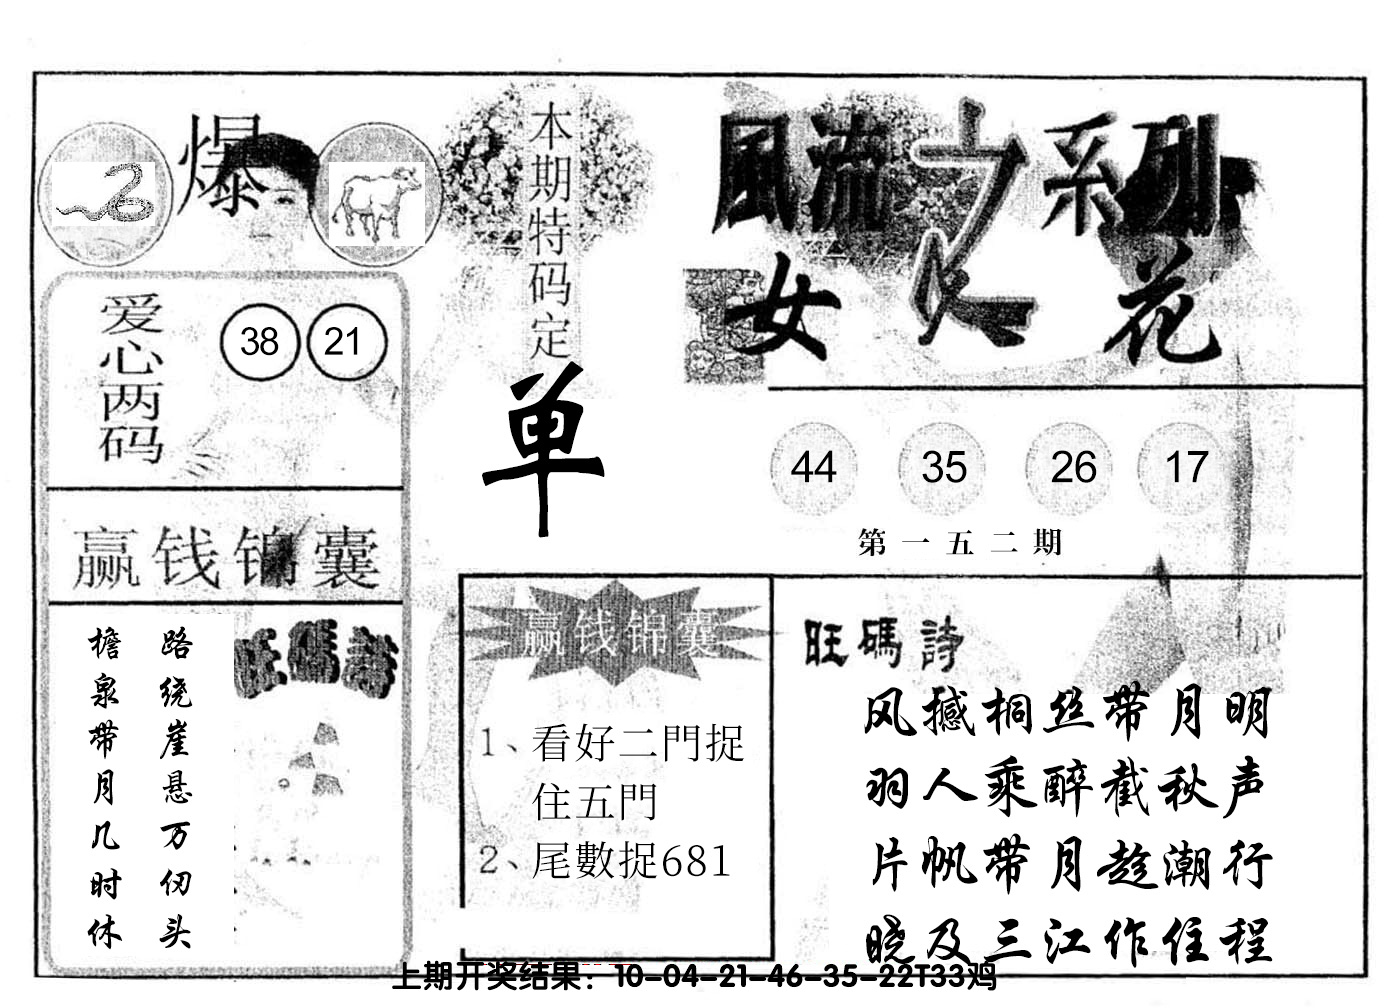 爆
本期特码定
单
風流之系列
女人花
爱心两码
38 21
44 35 26 17
第一五二期
赢钱锦囊
路绕崖悬万仞头
檐泉带月几时休
旺碼詩
赢钱锦囊
1、看好二門捉
住五門
2、尾數捉681
旺碼詩
风撼桐丝带月明
羽人乘醉截秋声
片帆带月趁潮行
晓及三江作住程
上期开奖结果：10-04-21-46-35-22T33鸡